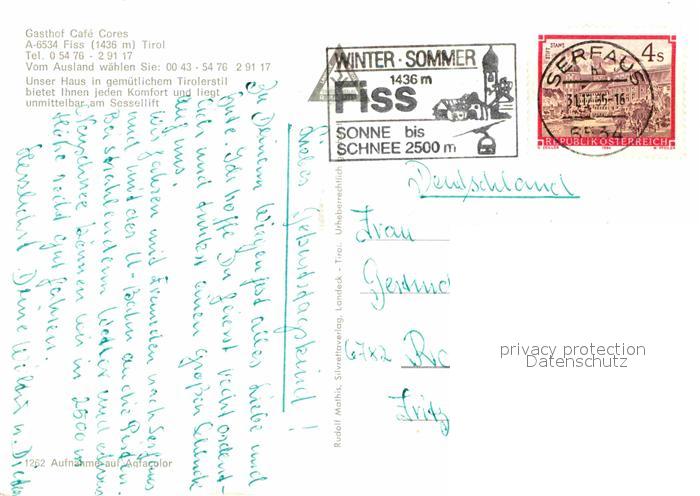 Gasthof Café Cores
A-6534 Fiss (1436 m) Tirol
Tel. 0 54 76 - 2 91 17
Vom Ausland wählen Sie: 00 43 - 54 76 2 91 17
Unser Haus in gemütlichem Tirolerstil
bietet Ihnen jeden Komfort und liegt
unmittelbar am Sessellift
WINTER · SOMMER
1436 m
Fiss
SONNE bis
SCHNEE 2500 m
SERFAUS
6534
4 s
STIFT STAMS
REPUBLIK ÖSTERREICH
Liebes Geburtstagskind!
Zu Deinem Wiegenfest alles Liebe und
Gute. Ich hoffe Du feierst recht ordent-
lich und trinkst einen großen Schluck
auf uns.
Wir fahren mit Freunden nach Serfaus
und mit der U-Bahn an die Pisten.
Bei strahlendem Wetter und etwas
Neuschnee können wir in 2500 m
Höhe recht gut fahren.
Herzlichst Deine
Deutschland
Frau
Gertrud
6782 Ro
Fritz
Rudolf Mathis, Silvrettaverlag, Landeck - Tirol. Urheberrechtlich
1262 Aufnahme auf Agfacolor
privacy protection
Datenschutz